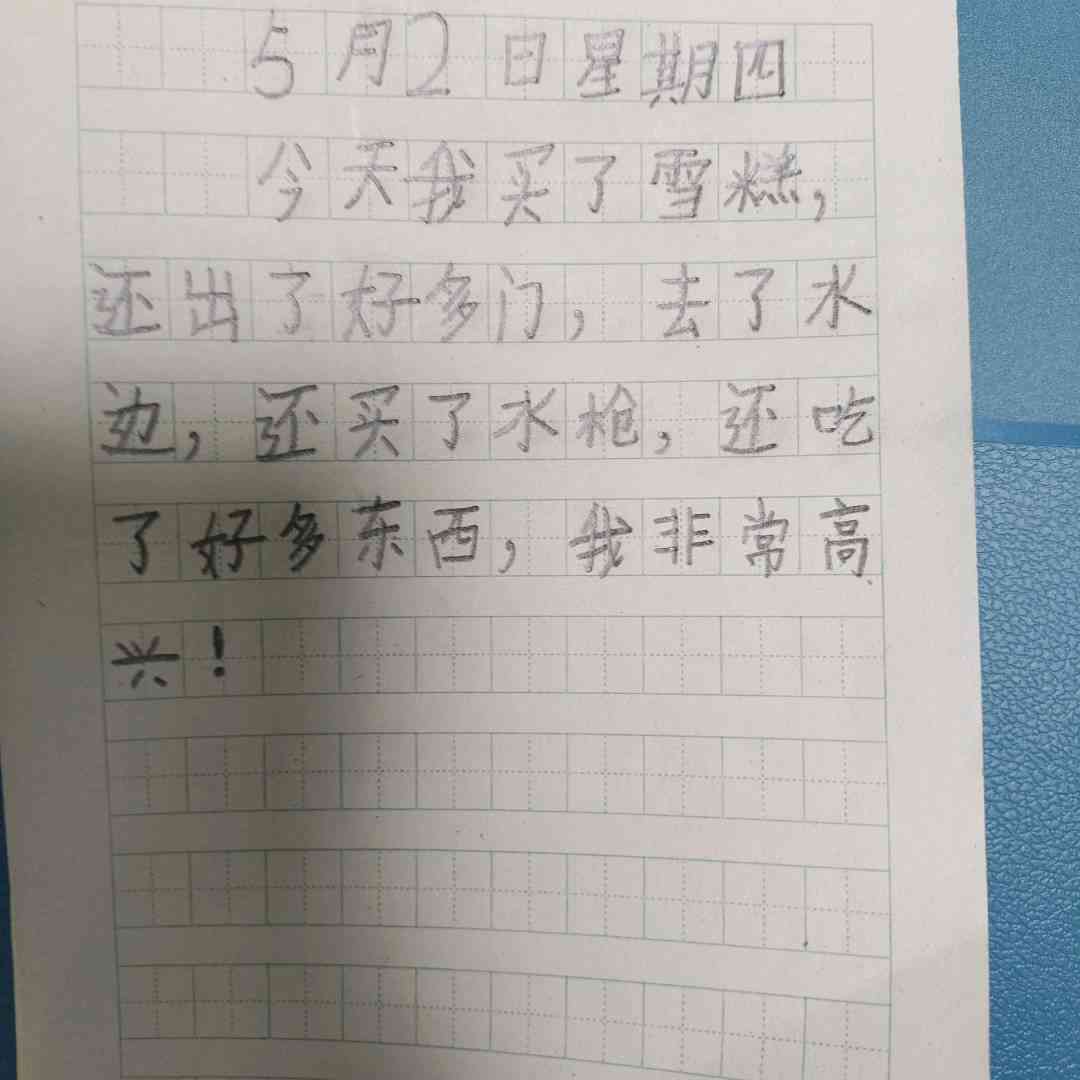 5月2日星期四
今天我买了雪糕，
还出了好多门，去了水
边，还买了水枪，还吃
了好多东西，我非常高
兴！